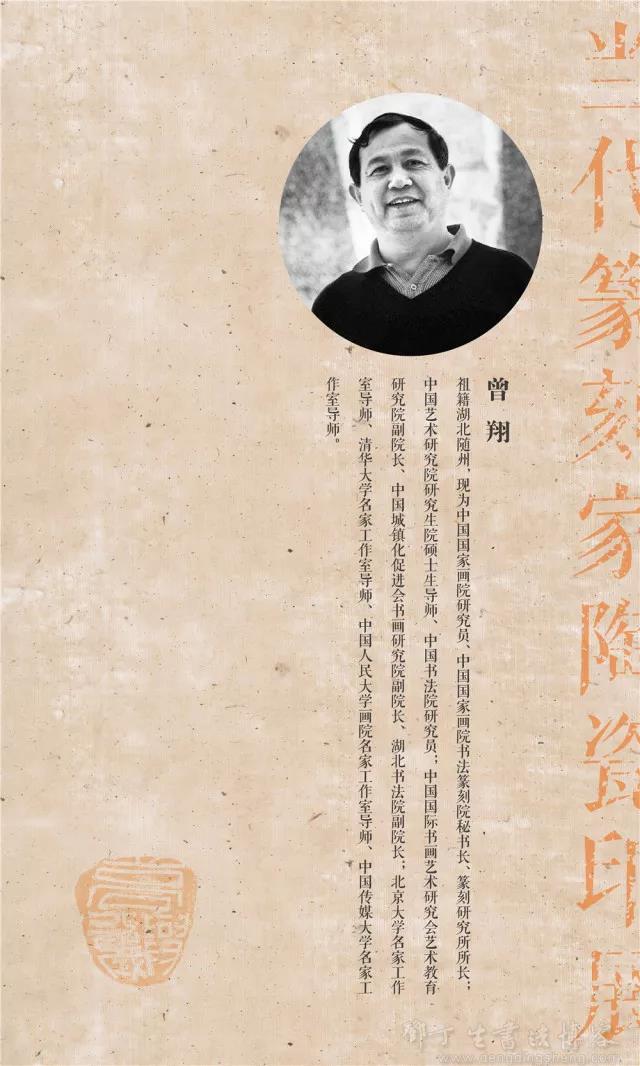 当代篆刻家陶瓷印展
曾翔
祖籍湖北随州，现为中国国家画院研究员、中国国家画院书法篆刻院秘书长、篆刻研究所所长；
中国艺术研究院研究生院硕士生导师、中国书法院研究员；中国国际书画艺术研究会艺术教育
研究院副院长、中国城镇化促进会书画研究院副院长、湖北书法院副院长；北京大学名家工作
室导师、清华大学名家工作室导师、中国人民大学画院名家工作室导师、中国传媒大学名家工
作室导师。
www.dengdingsheng.com